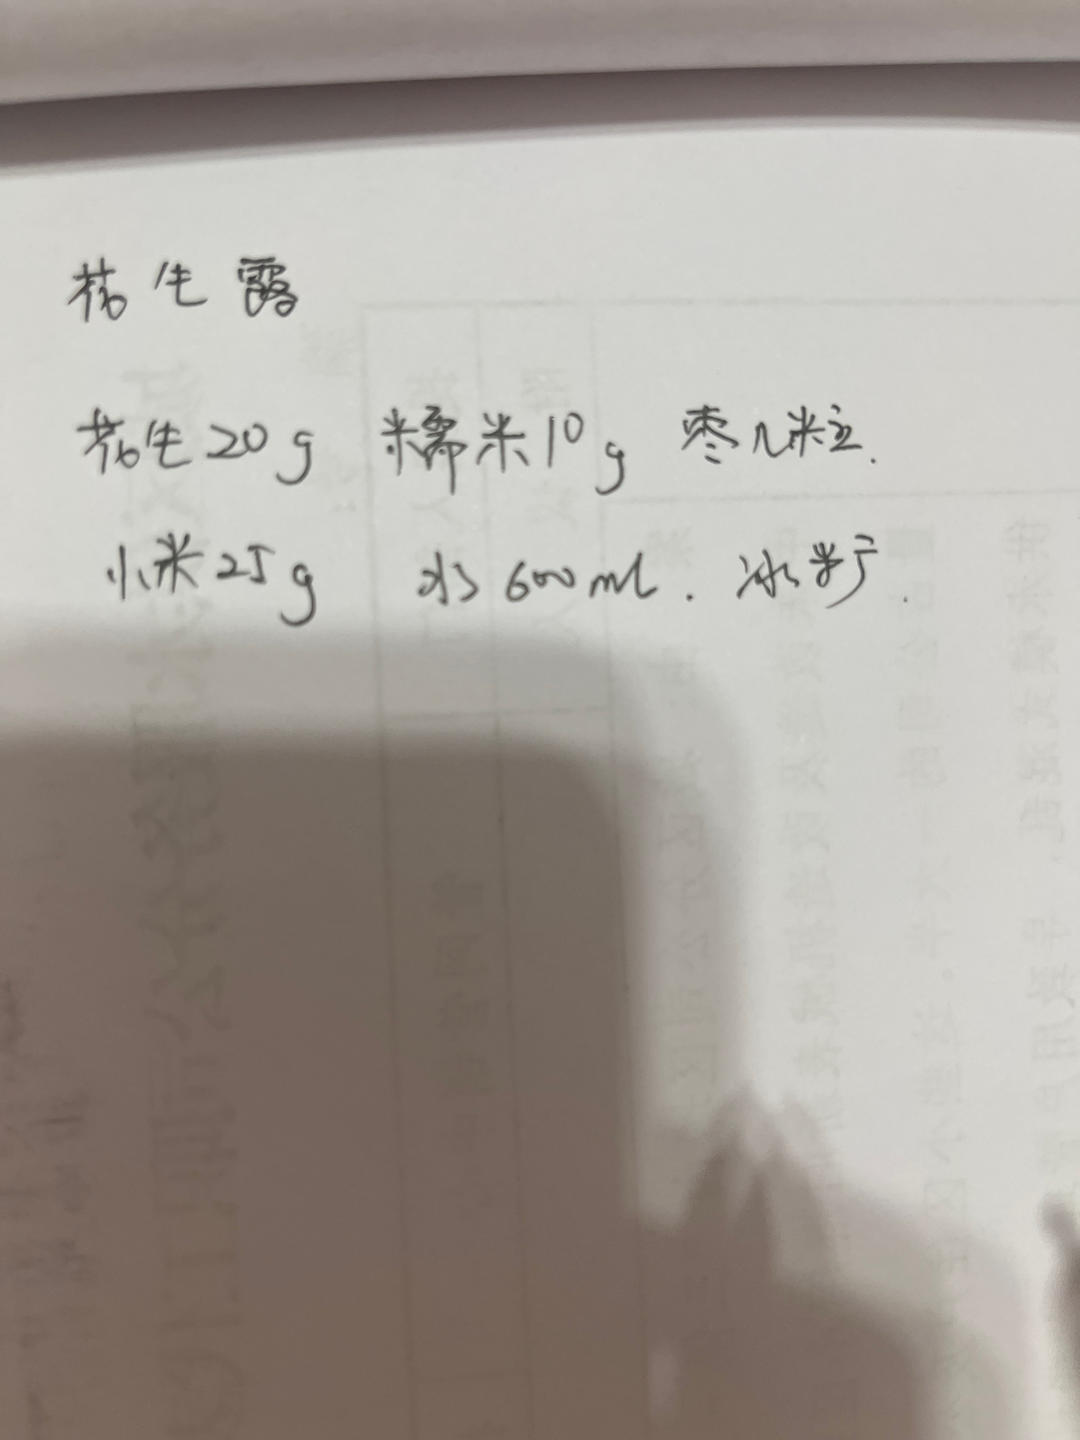 花生露
花生20g 糯米10g 枣几粒.
小米25g 水600ml. 冰